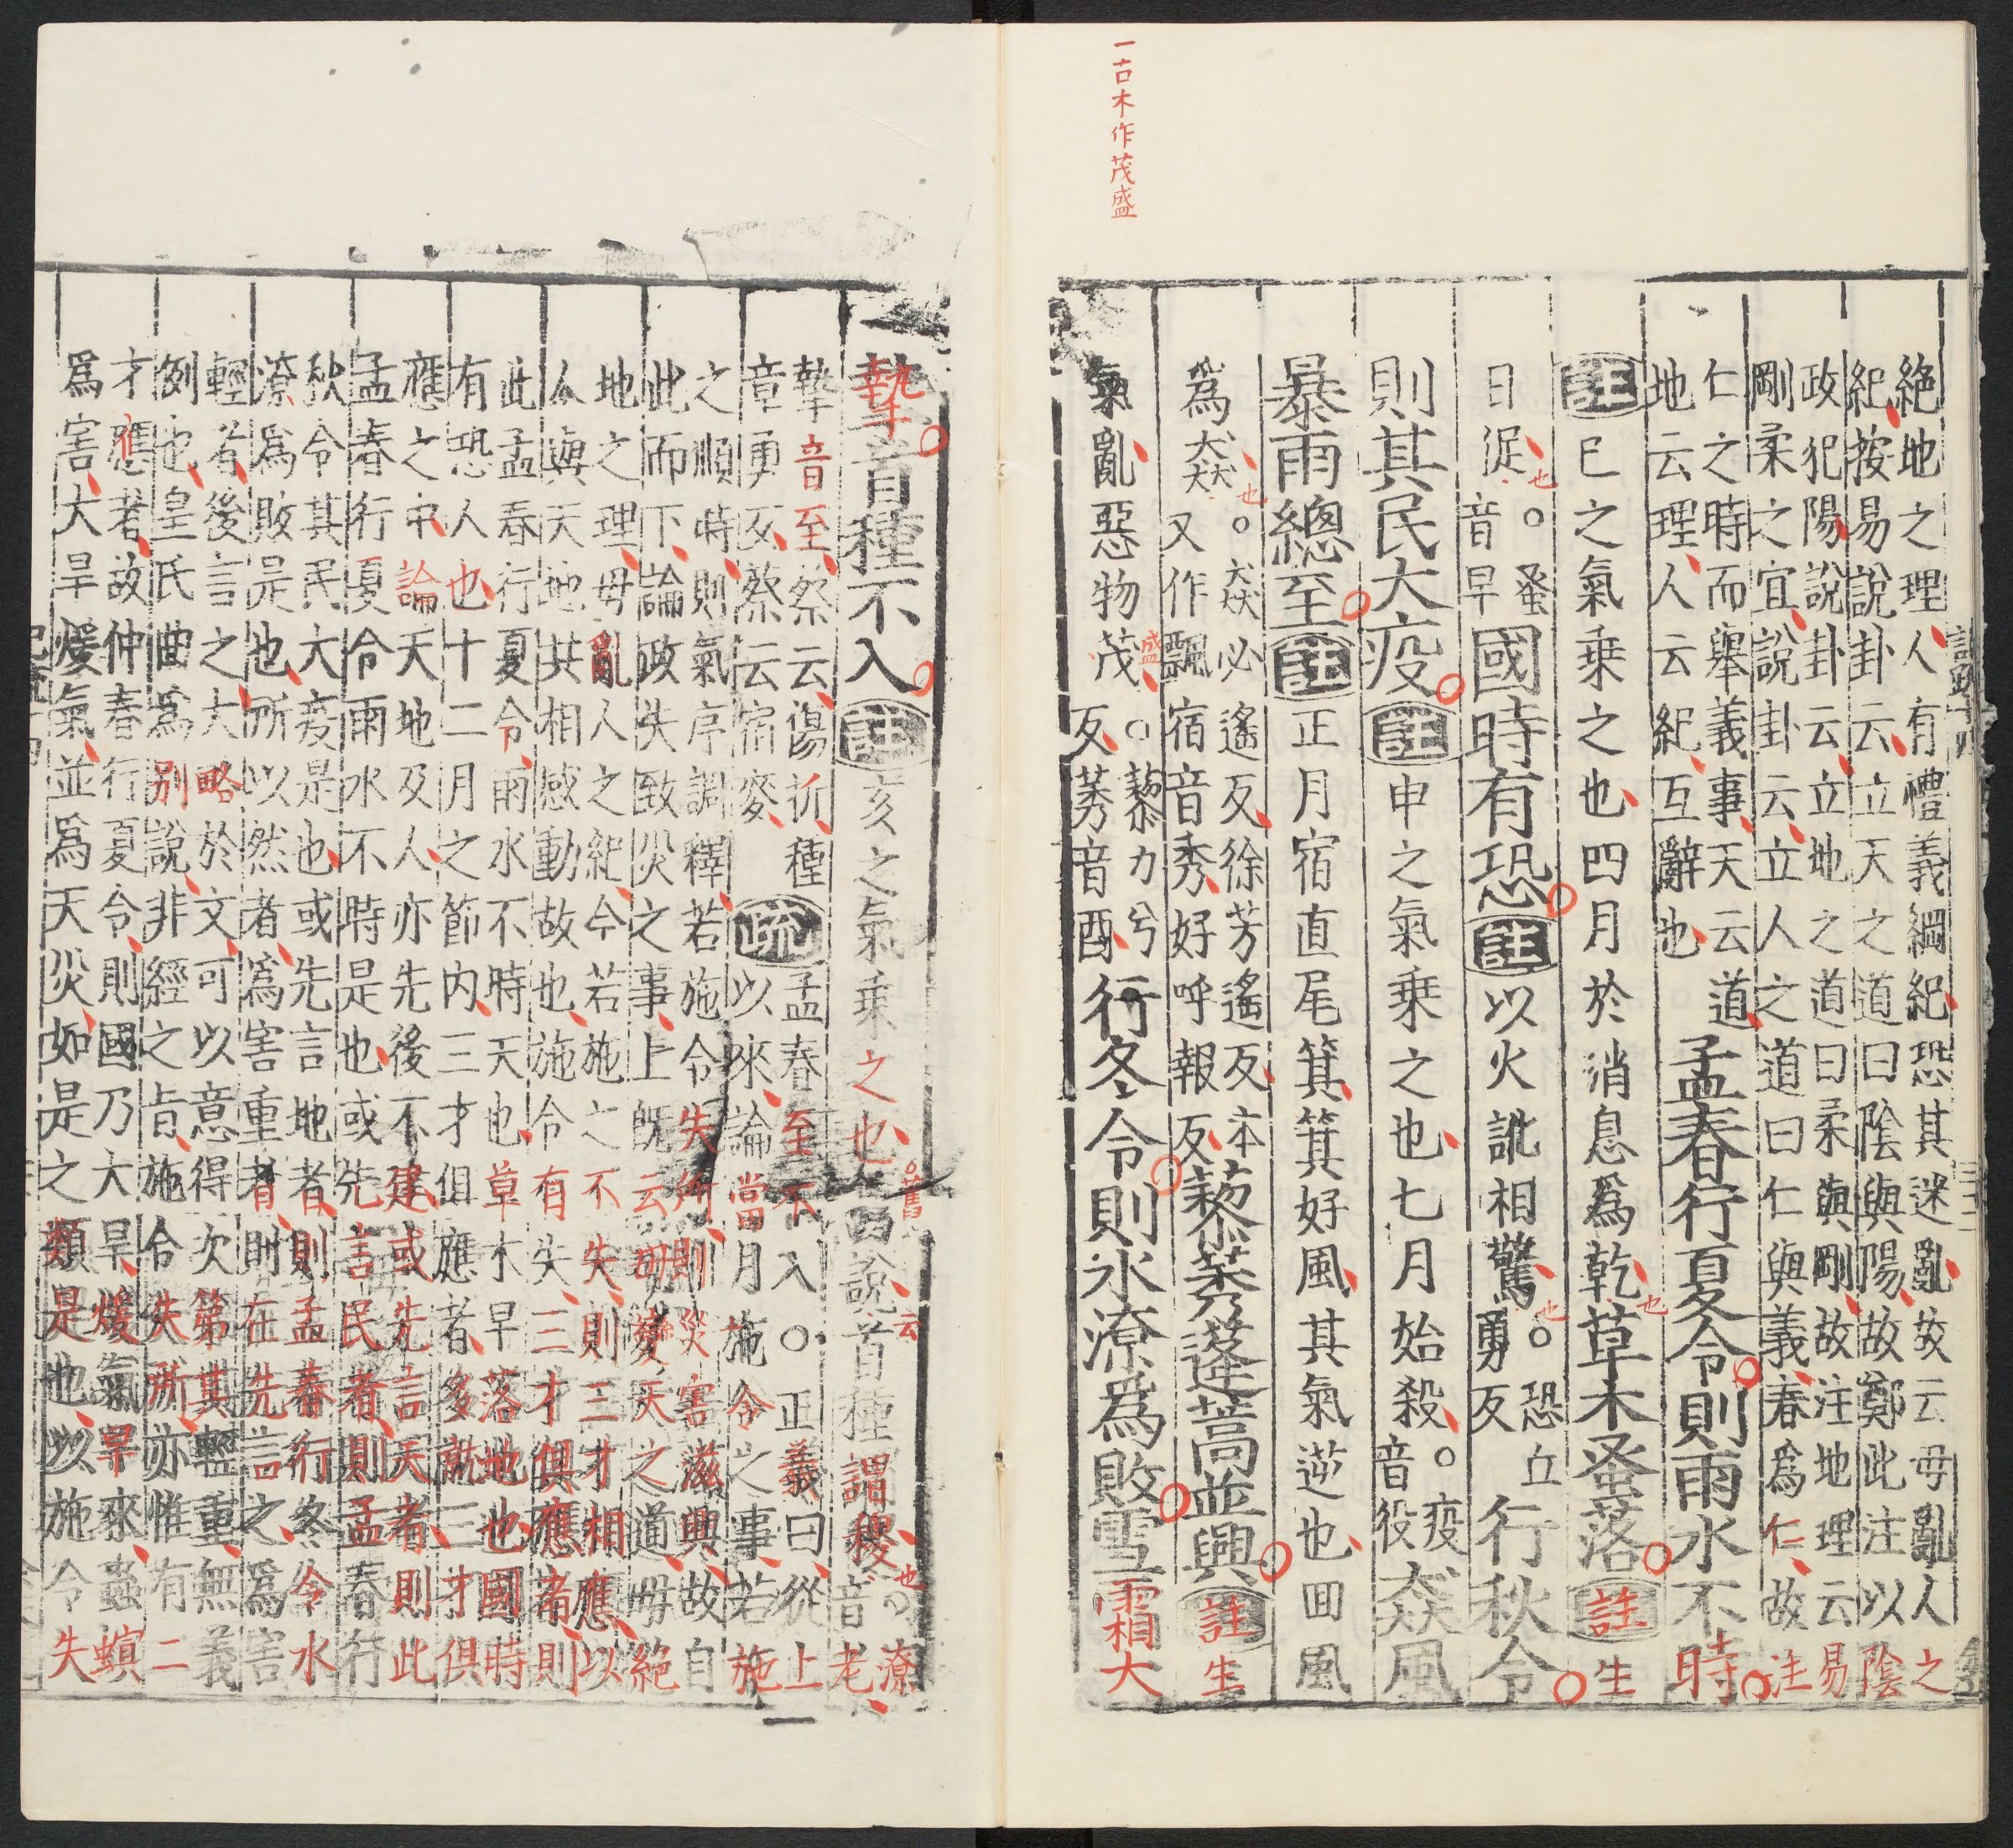 一古木作茂盛
絶地之理人有禮義綱紀恐其迷亂故云毋亂人之
紀按易說卦云立天之道曰陰與陽故鄭此注以陰
政犯陽說卦云立地之道曰柔與剛故注地理云易
剛柔之宜說卦云立人之道曰仁與義春爲仁故注
仁之時而舉義事天云道
地云理人云紀互辭也
孟春行夏令則雨水不時
註巳之氣乗之也四月於消息爲乾也草木蚤落註生
日促也○蚤音早國時有恐註以火訛相驚也○恐丘勇反行秋令
則其民大疫註申之氣乗之也七月始殺○疫音役猋風
暴雨總至註正月宿直尾箕箕好風其氣逆也回風
爲猋也○猋必遙反徐芳遙反本又作飄宿音秀好呼報反藜莠蓬蒿並興註生
氣亂惡物茂盛○藜力兮反莠音酉行冬令則水潦爲敗雪霜大
摯首種不入註亥之氣乗之也○舊說云首種謂稷也○潦音老
摯音至蔡云傷折種
章勇反蔡云宿麥
疏孟春至不入○正義曰從上
以來論當月施令之事若施
之順時則氣序調釋若施令失所則災害滋興故自
此而下論政失致災之事上既云毋變天之道毋絕
地之理毋亂人之紀今若施之不失則三才相應以
人與天地共相感動故也施令有失三才俱應者則
此孟春行夏令雨水不時天也草木早落地也國時
有恐人也十二月之節内三才俱應者多就三才俱
應之中論天地及人亦先後不建或先言天者則此
孟春行夏令雨水不時是也或先言民者則孟春行
秋令其民大疫是也或先言地者則孟春行冬令水
潦爲敗是也所以然者爲害重者則在先言之爲害
輕者後言之大略於文可以意得次第其輕重無義
例也皇氏曲爲別說非經之旨施令失所亦惟有二
才應者故仲春行夏令則國乃大旱煖氣早來蟲螟
爲害大旱煖氣並爲天災如是之類是也以施令失